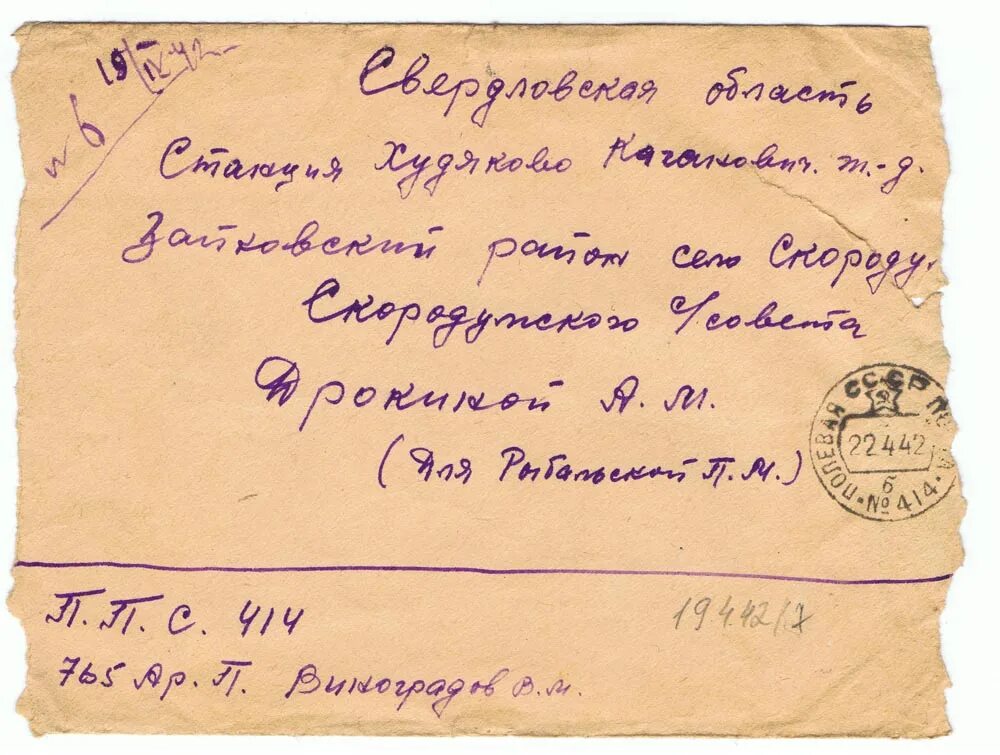 19/IV-42
№ 6
Свердловская область
Станция Худяково Каганович. ж.-д.
Зайковский район село Скороду.
Скородумского с/совета
Дрокиной А. М.
(Для Рыбальской П. М.)
ПОЛЕВАЯ СССР
22 4 42
б
№ 414
П. П. С. 414
765 Ар. П. Виноградов В. М.
19 4 42/7